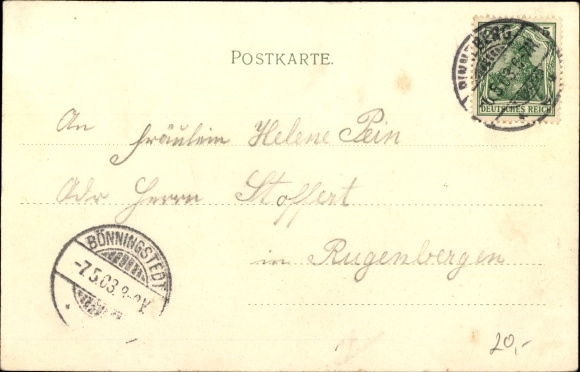 POSTKARTE.
PINNEBERG
DEUTSCHES REICH
An
Fräulein Helene Pein
Adr Herrn Stoffert
in Rugenbergen
BÖNNINGSTEDT
-7.5.03.8-9V.
20,-